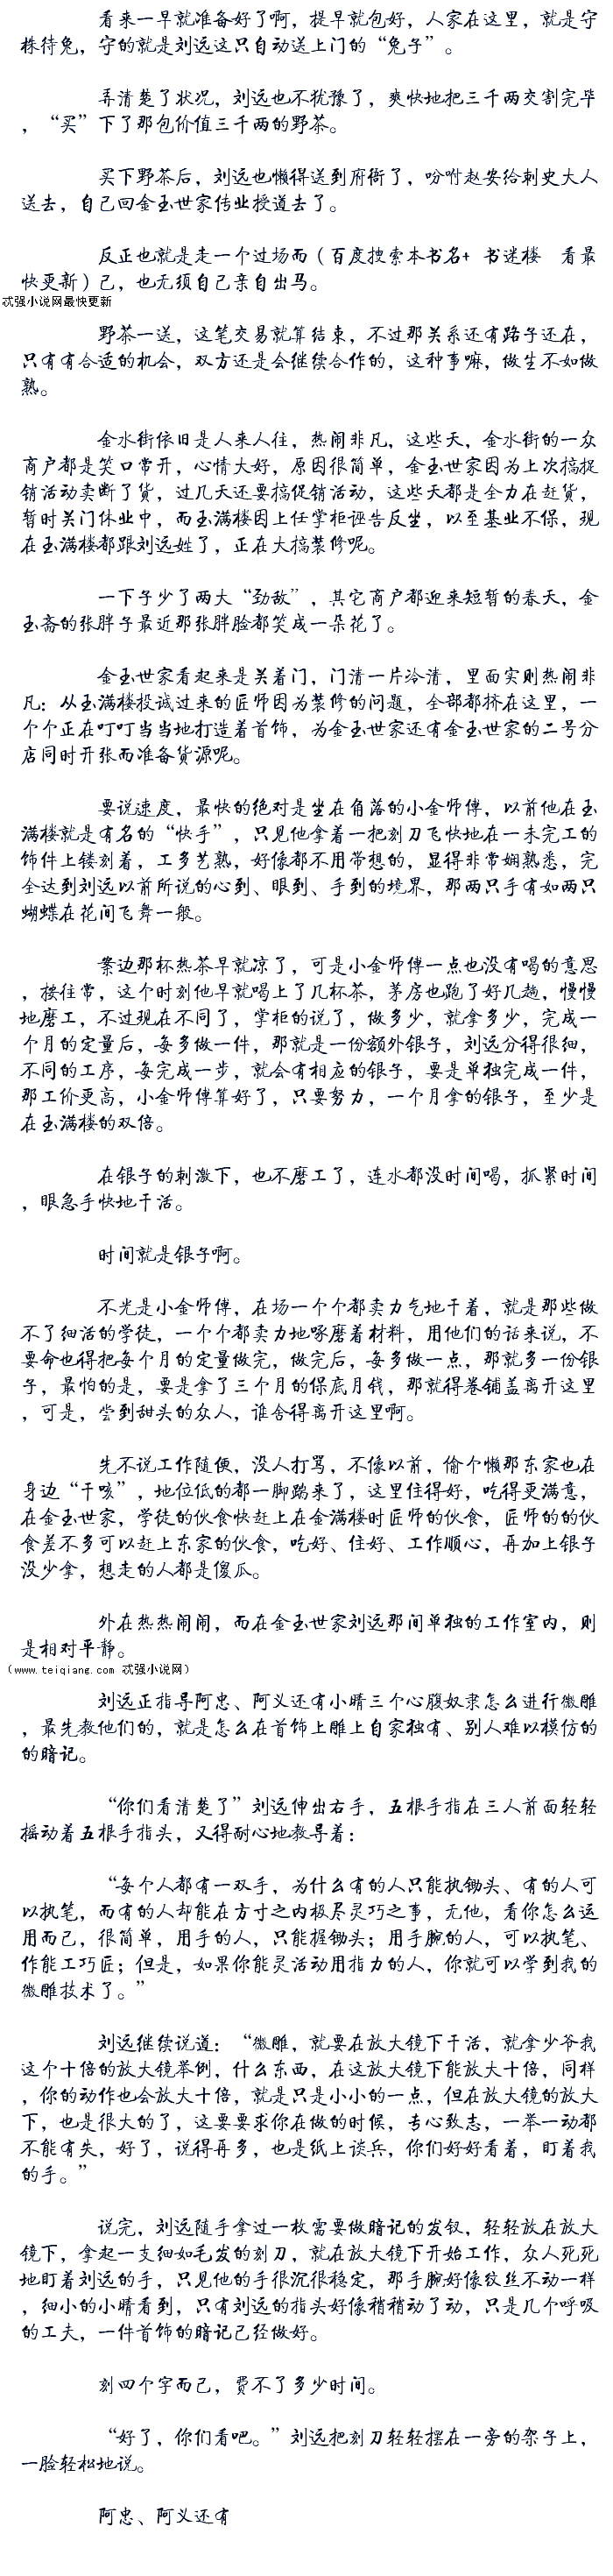 看来一早就准备好了啊，提早就包好，人家在这里，就是守
株待兔，守的就是刘远这只自动送上门的“兔子”。
弄清楚了状况，刘远也不犹豫了，爽快地把三千两交割完毕
，“买”下了那包价值三千两的野茶。
买下野茶后，刘远也懒得送到府衙了，吩咐赵安给刺史大人
送去，自己回金玉世家传业授道去了。
反正也就是走一个过场而（百度搜索本书名+ 书迷楼 看最
快更新）己，也无须自己亲自出马。
忒强小说网最快更新
野茶一送，这笔交易就算结束，不过那关系还有路子还在，
只有有合适的机会，双方还是会继续合作的，这种事嘛，做生不如做
熟。
金水街依旧是人来人往，热闹非凡，这些天，金水街的一众
商户都是笑口常开，心情大好，原因很简单，金玉世家因为上次搞促
销活动卖断了货，过几天还要搞促销活动，这些天都是全力在赶货，
暂时关门休业中，而玉满楼因上任掌柜诬告反坐，以至基业不保，现
在玉满楼都跟刘远姓了，正在大搞装修呢。
一下子少了两大“劲敌”，其它商户都迎来短暂的春天，金
玉斋的张胖子最近那张胖脸都笑成一朵花了。
金玉世家看起来是关着门，门清一片冷清，里面实则热闹非
凡：从玉满楼投诚过来的匠师因为装修的问题，全部都挤在这里，一
个个正在叮叮当当地打造着首饰，为金玉世家还有金玉世家的二号分
店同时开张而准备货源呢。
要说速度，最快的绝对是坐在角落的小金师傅，以前他在玉
满楼就是有名的“快手”，只见他拿着一把刻刀飞快地在一未完工的
饰件上镂刻着，工多艺熟，好像都不用带想的，显得非常娴熟悉，完
全达到刘远以前所说的心到、眼到、手到的境界，那两只手有如两只
蝴蝶在花间飞舞一般。
案边那杯热茶早就凉了，可是小金师傅一点也没有喝的意思
，按往常，这个时刻他早就喝上了几杯茶，茅房也跑了好几趟，慢慢
地磨工，不过现在不同了，掌柜的说了，做多少，就拿多少，完成一
个月的定量后，每多做一件，那就是一份额外银子，刘远分得很细，
不同的工序，每完成一步，就会有相应的银子，要是单独完成一件，
那工价更高，小金师傅算好了，只要努力，一个月拿的银子，至少是
在玉满楼的双倍。
在银子的刺激下，也不磨工了，连水都没时间喝，抓紧时间
，眼急手快地干活。
时间就是银子啊。
不光是小金师傅，在场一个个都卖力气地干着，就是那些做
不了细活的学徒，一个个都卖力地啄磨着材料，用他们的话来说，不
要命也得把每个月的定量做完，做完后，每多做一点，那就多一份银
子，最怕的是，要是拿了三个月的保底月钱，那就得卷铺盖离开这里
，可是，尝到甜头的众人，谁舍得离开这里啊。
先不说工作随便，没人打骂，不像以前，偷个懒那东家也在
身边“干咳”，地位低的都一脚踹来了，这里住得好，吃得更满意，
在金玉世家，学徒的伙食快赶上在金满楼时匠师的伙食，匠师的的伙
食差不多可以赶上东家的伙食，吃好、住好、工作顺心，再加上银子
没少拿，想走的人都是傻瓜。
外在热热闹闹，而在金玉世家刘远那间单独的工作室内，则
是相对平静。
（www.teiqiang.com 忒强小说网）
刘远正指导阿忠、阿义还有小晴三个心腹奴隶怎么进行微雕
，最先教他们的，就是怎么在首饰上雕上自家独有、别人难以模仿的
的暗记。
“你们看清楚了”刘远伸出右手，五根手指在三人前面轻轻
摇动着五根手指头，又得耐心地教导着：
“每个人都有一双手，为什么有的人只能执锄头、有的人可
以执笔，而有的人却能在方寸之内极尽灵巧之事，无他，看你怎么运
用而己，很简单，用手的人，只能握锄头；用手腕的人，可以执笔、
作能工巧匠；但是，如果你能灵活动用指力的人，你就可以学到我的
微雕技术了。”
刘远继续说道：“微雕，就要在放大镜下干活，就拿少爷我
这个十倍的放大镜举例，什么东西，在这放大镜下能放大十倍，同样
，你的动作也会放大十倍，就是只是小小的一点，但在放大镜的放大
下，也是很大的了，这要要求你在做的时候，专心致志，一举一动都
不能有失，好了，说得再多，也是纸上谈兵，你们好好看着，盯着我
的手。”
说完，刘远随手拿过一枚需要做暗记的发钗，轻轻放在放大
镜下，拿起一支细如毛发的刻刀，就在放大镜下开始工作，众人死死
地盯着刘远的手，只见他的手很沉很稳定，那手腕好像纹丝不动一样
，细小的小晴看到，只有刘远的指头好像稍稍动了动，只是几个呼吸
的工夫，一件首饰的暗记己经做好。
刻四个字而己，费不了多少时间。
“好了，你们看吧。”刘远把刻刀轻轻摆在一旁的架子上，
一脸轻松地说。
阿忠、阿义还有